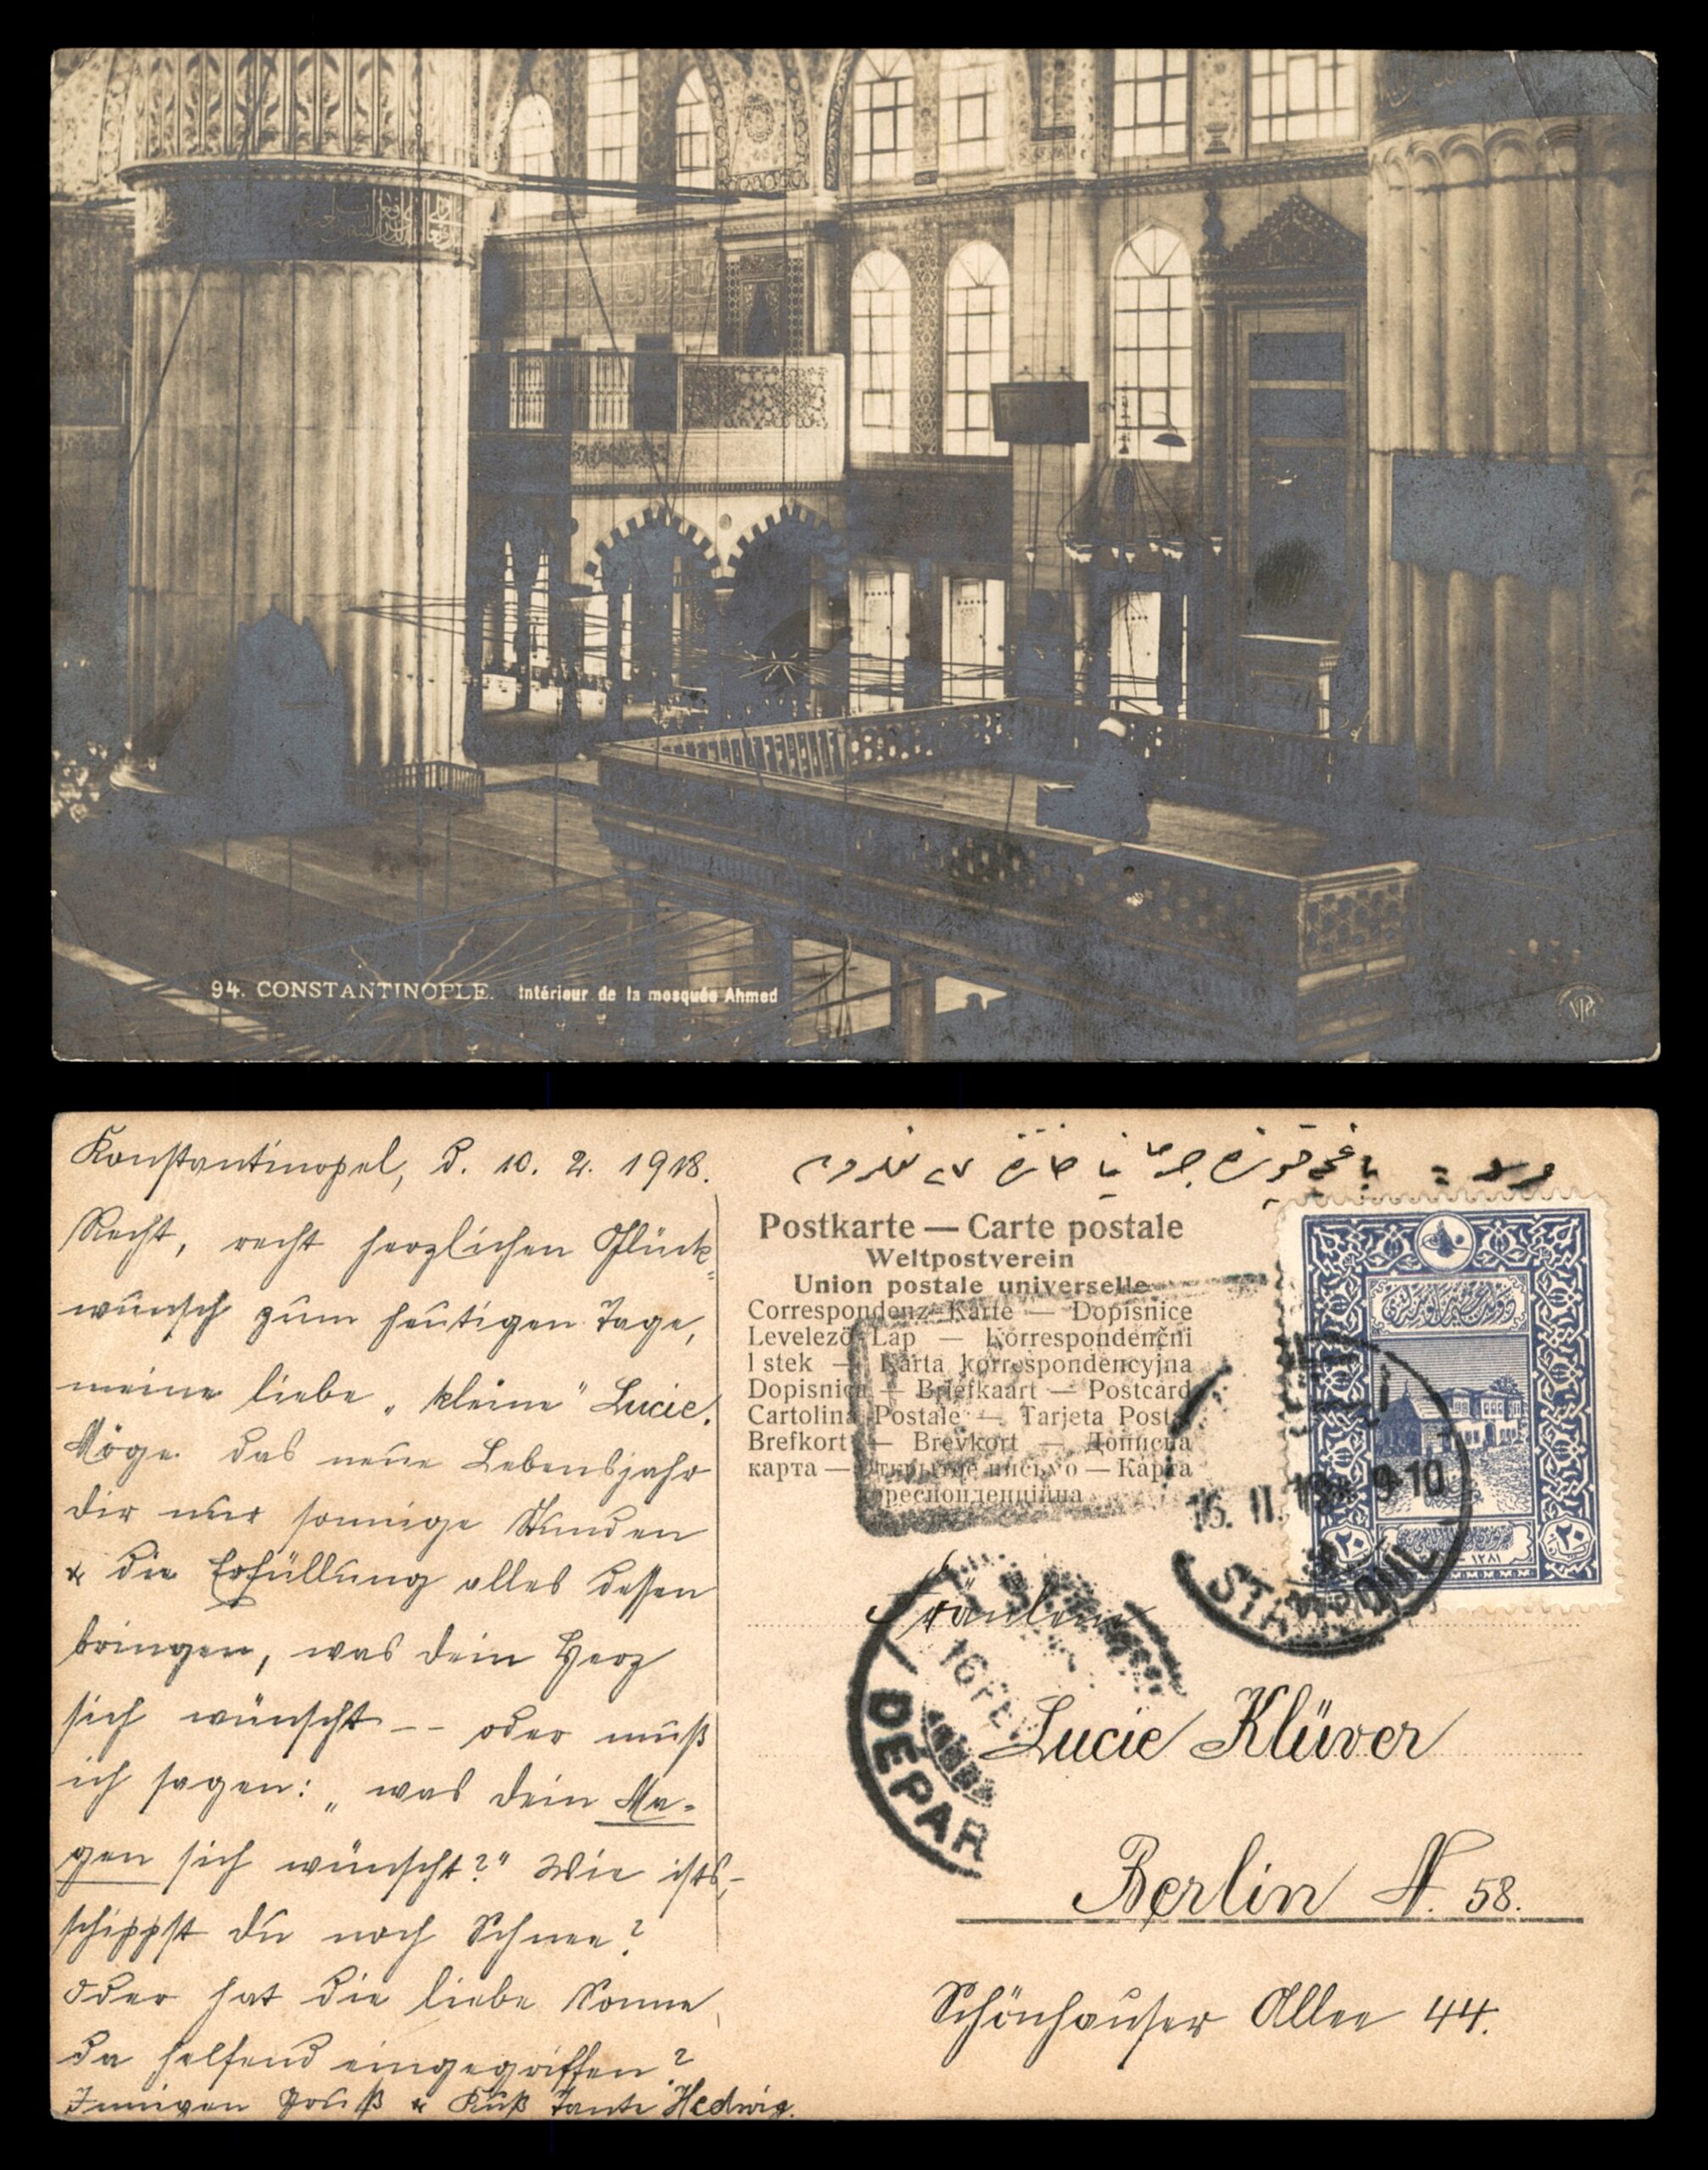 94. CONSTANTINOPLE. Intérieur de la mosquée Ahmed
Konstantinopel, d. 10. 2. 1918.
Recht, recht herzlichen Glück-
wunsch zum heutigen Tage,
meine liebe „kleine“ Lucie.
Möge das neue Lebensjahr
dir nur sonnige Stunden
& die Erfüllung alles dessen
bringen, was dein Herz
sich wünscht -- oder muß
ich sagen: „was dein Ma-
gen sich wünscht?“ Wie ists,-
schippst du noch Schnee?
Oder hat die liebe Sonne
da helfend eingegriffen?
Innigen Gruß & Kuß Tante Hedwig.
Postkarte — Carte postale
Weltpostverein
Union postale universelle
Correspondenz-Karte — Dopisnice
Levelező-Lap — Korrespondenční
lstek — Karta korrespondencyjna
Dopisnica — Briefkaart — Postcard
Cartolina Postale — Tarjeta Postal
Brefkort — Brevkort — Дописна
карта — Открытое письмо — Карта
кореспонденційна
١٢٨١
٢٠ ٢٠
II. 9-10
STAMBOUL
16 FE
DÉPAR
Fräulein
Lucie Klüver
Berlin N. 58.
Schönhauser Allee 44.